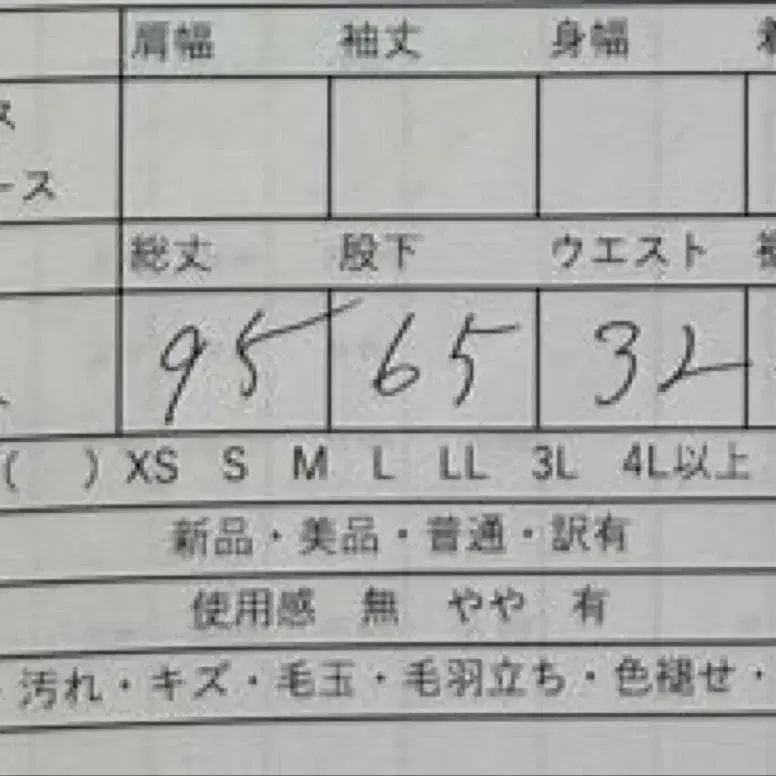 肩幅 袖丈 身幅
ース
総丈 股下 ウエスト
95 65 32
( ) XS S M L LL 3L 4L以上
新品・美品・普通・訳有
使用感 無 やや 有
汚れ・キズ・毛玉・毛羽立ち・色褪せ・